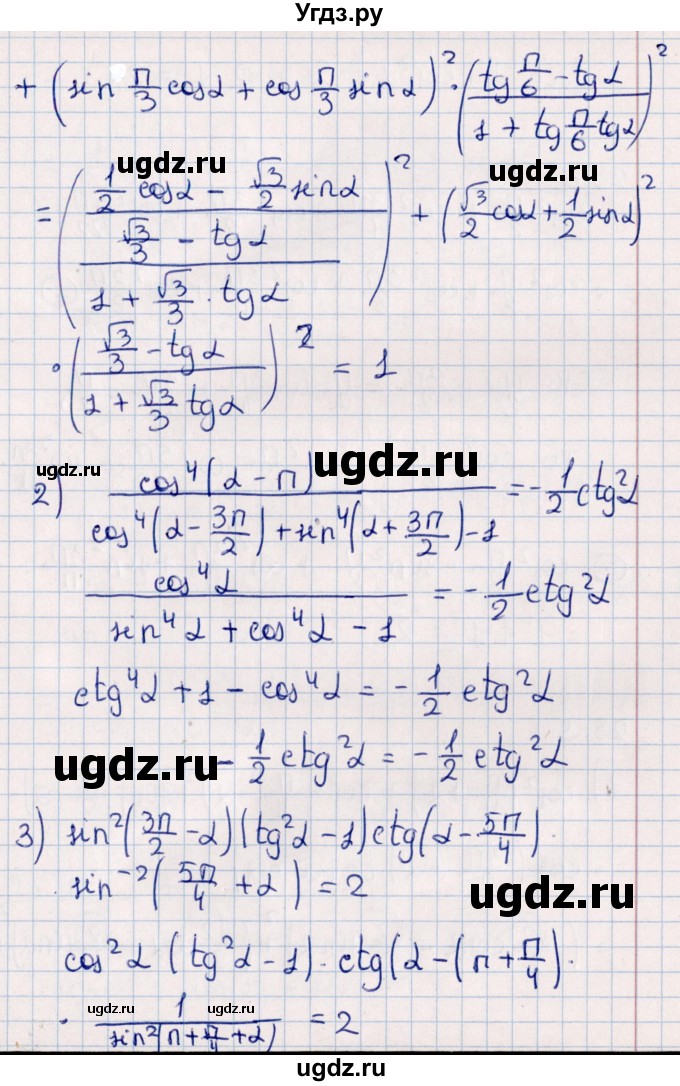 Угдз.ру
+ (sin π/3 cosα + cos π/3 sinα)² · ((tg π/6 - tgα)/(1 + tg π/6 tgα))²
ugdz.ru
ugdz.ru
= ((1/2 cosα - √3/2 sinα)/((√3/3 - tgα)/(1 + √3/3 · tgα)))² + (√3/2 cosα + 1/2 sinα)²
· ((√3/3 - tgα)/(1 + √3/3 tgα))² = 1
ugdz.ru
ugdz.ru
2) cos⁴(α - π)/(cos⁴(α - 3π/2) + sin⁴(α + 3π/2) - 1) = -1/2 ctg²α
cos⁴α/(sin⁴α + cos⁴α - 1) = -1/2 ctg²α
ctg⁴α + 1 - cos⁴α = -1/2 ctg²α
ugdz.ru
-1/2 ctg²α = -1/2 ctg²α
3) sin²(3π/2 - α)(tg²α - 1)ctg(α - 5π/4) ·
· sin⁻²(5π/4 + α) = 2
ugdz.ru
cos²α (tg²α - 1) · ctg(α - (π + π/4) ·
ugdz.ru
ugdz.ru
· 1/(sin²(π + π/4 + α)) = 2
ugdz.ru